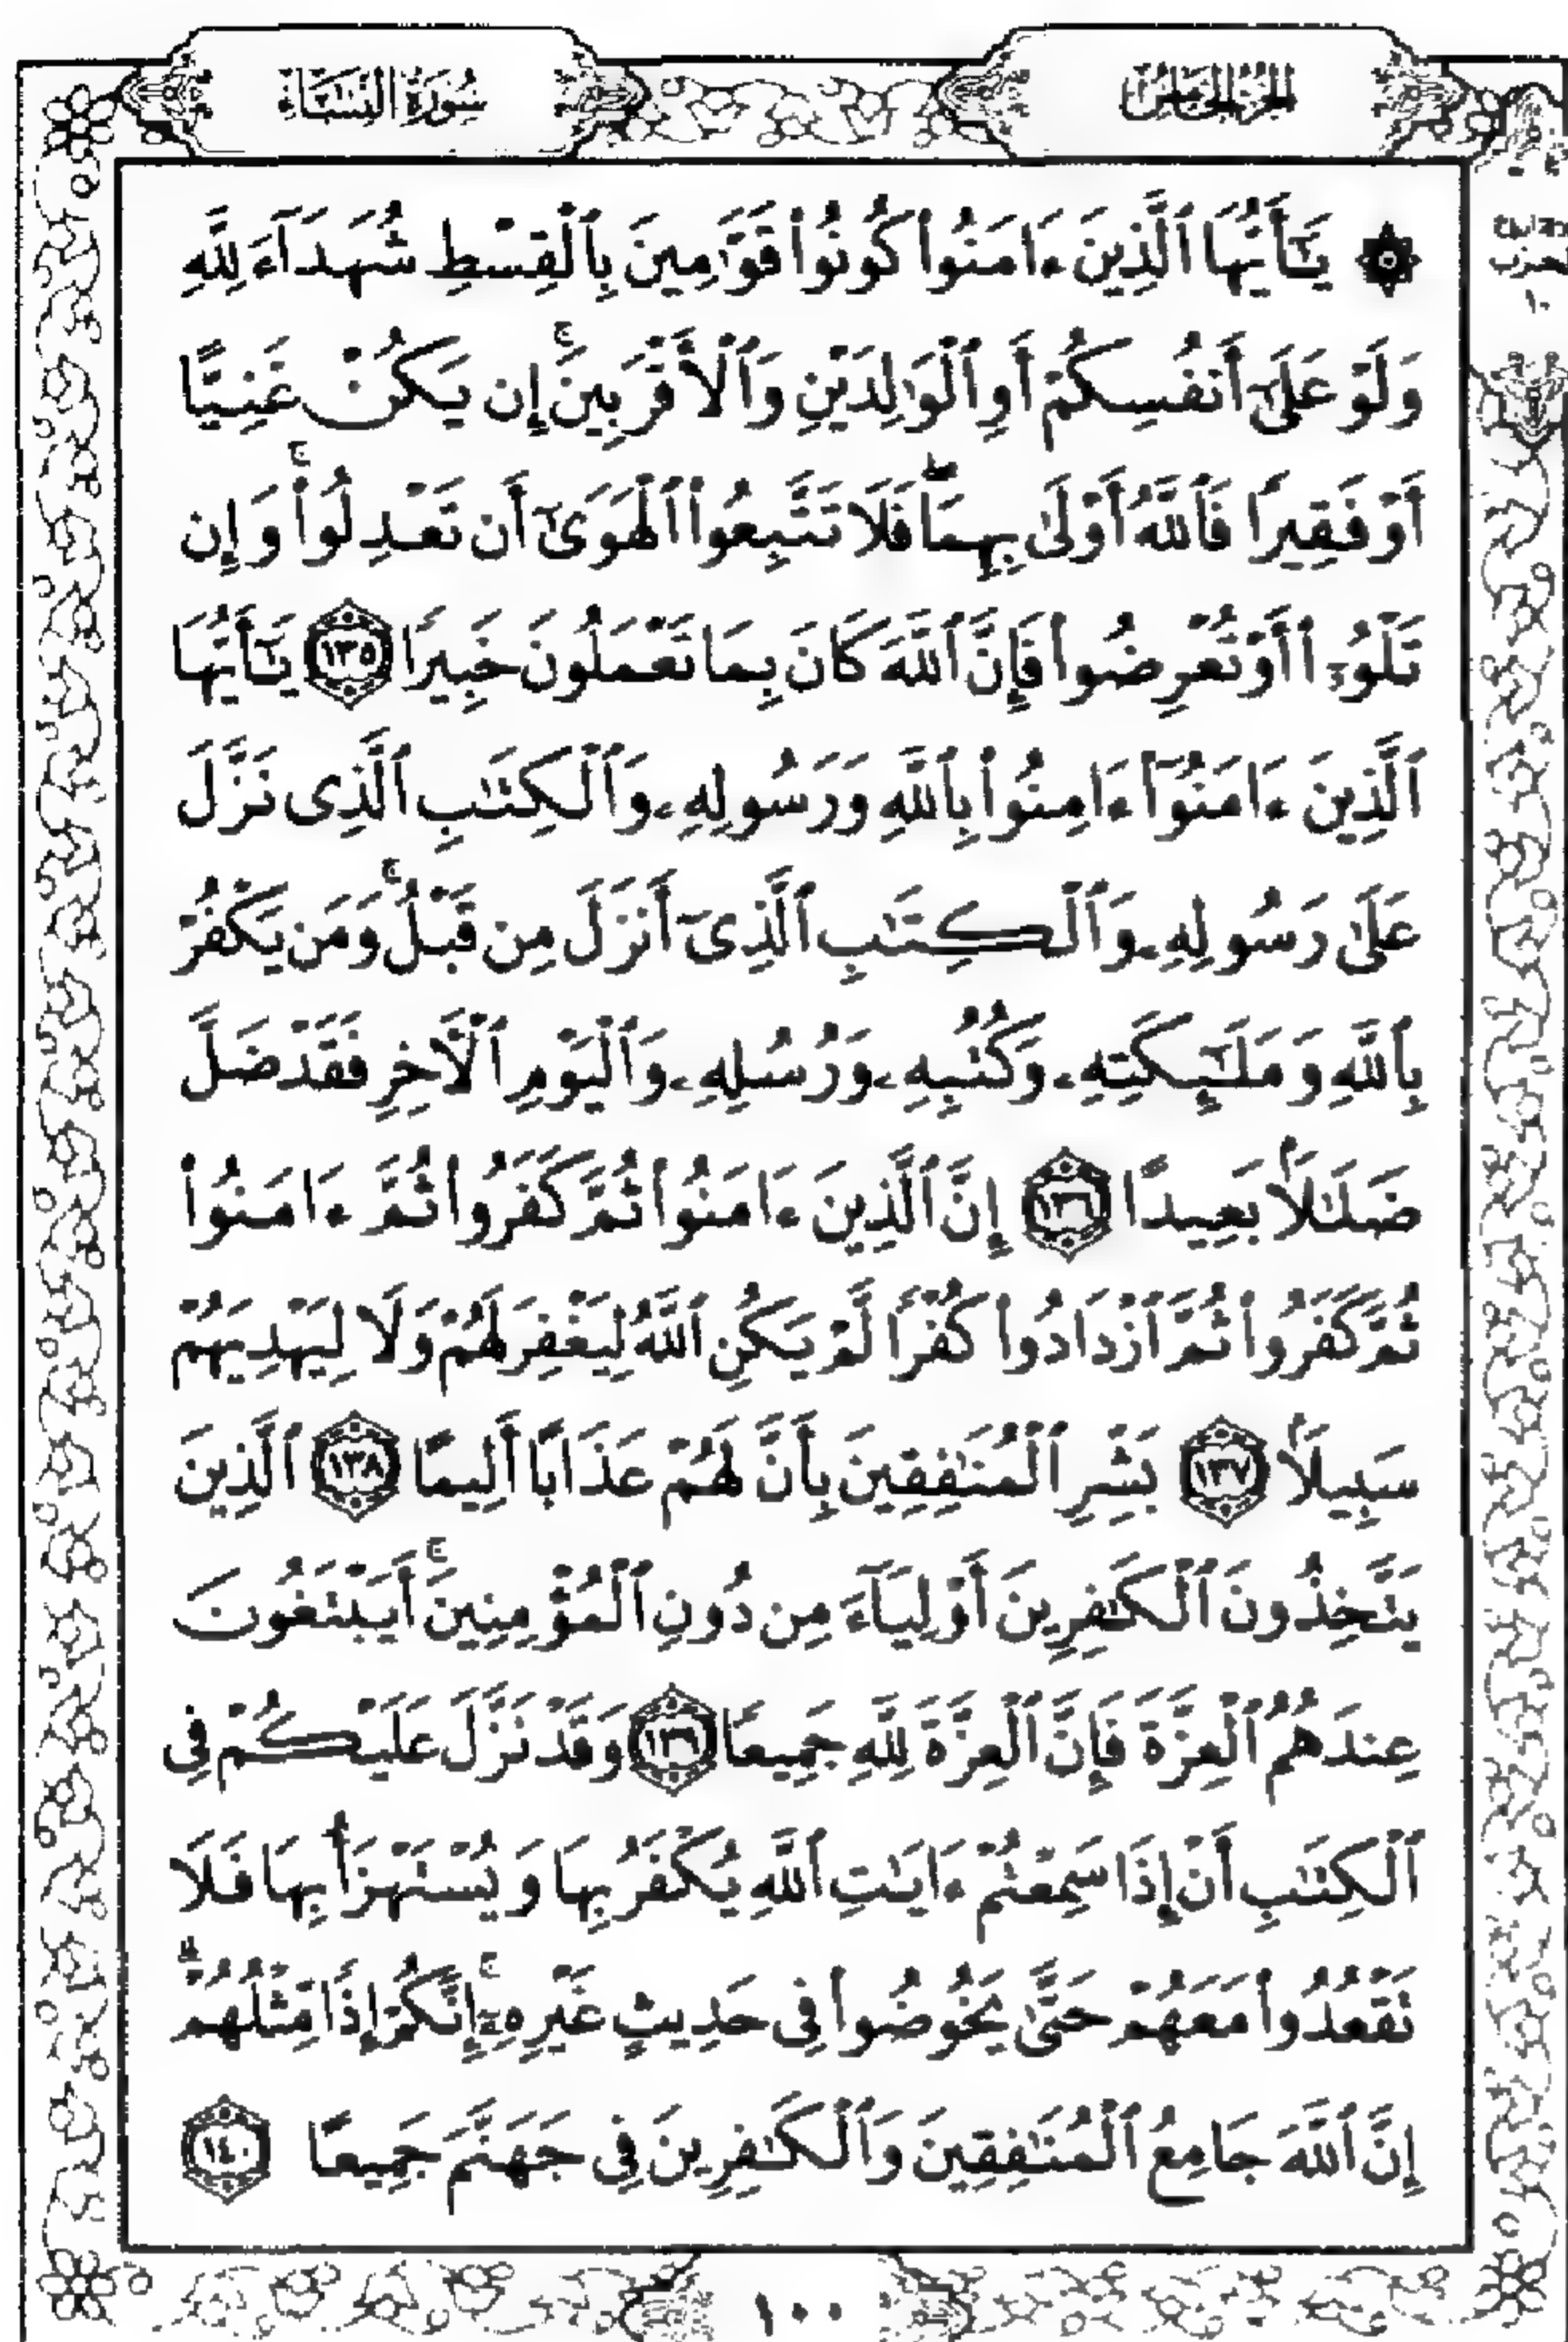 الجزء الخامس سورة النساء
۞ يَٰٓأَيُّهَا ٱلَّذِينَ ءَامَنُوا۟ كُونُوا۟ قَوَّٰمِينَ بِٱلْقِسْطِ شُهَدَآءَ لِلَّهِ
وَلَوْ عَلَىٰٓ أَنفُسِكُمْ أَوِ ٱلْوَٰلِدَيْنِ وَٱلْأَقْرَبِينَ ۚ إِن يَكُنْ غَنِيًّا
أَوْ فَقِيرًا فَٱللَّهُ أَوْلَىٰ بِهِمَا ۖ فَلَا تَتَّبِعُوا۟ ٱلْهَوَىٰٓ أَن تَعْدِلُوا۟ ۚ وَإِن
تَلْوُۥٓا۟ أَوْ تُعْرِضُوا۟ فَإِنَّ ٱللَّهَ كَانَ بِمَا تَعْمَلُونَ خَبِيرًا ١٣٥ يَٰٓأَيُّهَا
ٱلَّذِينَ ءَامَنُوٓا۟ ءَامِنُوا۟ بِٱللَّهِ وَرَسُولِهِۦ وَٱلْكِتَٰبِ ٱلَّذِى نَزَّلَ
عَلَىٰ رَسُولِهِۦ وَٱلْكِتَٰبِ ٱلَّذِىٓ أَنزَلَ مِن قَبْلُ ۚ وَمَن يَكْفُرْ
بِٱللَّهِ وَمَلَٰٓئِكَتِهِۦ وَكُتُبِهِۦ وَرُسُلِهِۦ وَٱلْيَوْمِ ٱلْءَاخِرِ فَقَدْ ضَلَّ
ضَلَٰلًۢا بَعِيدًا ١٣٦ إِنَّ ٱلَّذِينَ ءَامَنُوا۟ ثُمَّ كَفَرُوا۟ ثُمَّ ءَامَنُوا۟
ثُمَّ كَفَرُوا۟ ثُمَّ ٱزْدَادُوا۟ كُفْرًا لَّمْ يَكُنِ ٱللَّهُ لِيَغْفِرَ لَهُمْ وَلَا لِيَهْدِيَهُمْ
سَبِيلًۢا ١٣٧ بَشِّرِ ٱلْمُنَٰفِقِينَ بِأَنَّ لَهُمْ عَذَابًا أَلِيمًا ١٣٨ ٱلَّذِينَ
يَتَّخِذُونَ ٱلْكَٰفِرِينَ أَوْلِيَآءَ مِن دُونِ ٱلْمُؤْمِنِينَ ۚ أَيَبْتَغُونَ
عِندَهُمُ ٱلْعِزَّةَ فَإِنَّ ٱلْعِزَّةَ لِلَّهِ جَمِيعًا ١٣٩ وَقَدْ نَزَّلَ عَلَيْكُمْ فِى
ٱلْكِتَٰبِ أَنْ إِذَا سَمِعْتُمْ ءَايَٰتِ ٱللَّهِ يُكْفَرُ بِهَا وَيُسْتَهْزَأُ بِهَا فَلَا
تَقْعُدُوا۟ مَعَهُمْ حَتَّىٰ يَخُوضُوا۟ فِى حَدِيثٍ غَيْرِهِۦٓ ۚ إِنَّكُمْ إِذًا مِّثْلُهُمْ ۗ
إِنَّ ٱللَّهَ جَامِعُ ٱلْمُنَٰفِقِينَ وَٱلْكَٰفِرِينَ فِى جَهَنَّمَ جَمِيعًا ١٤٠
١٠٠